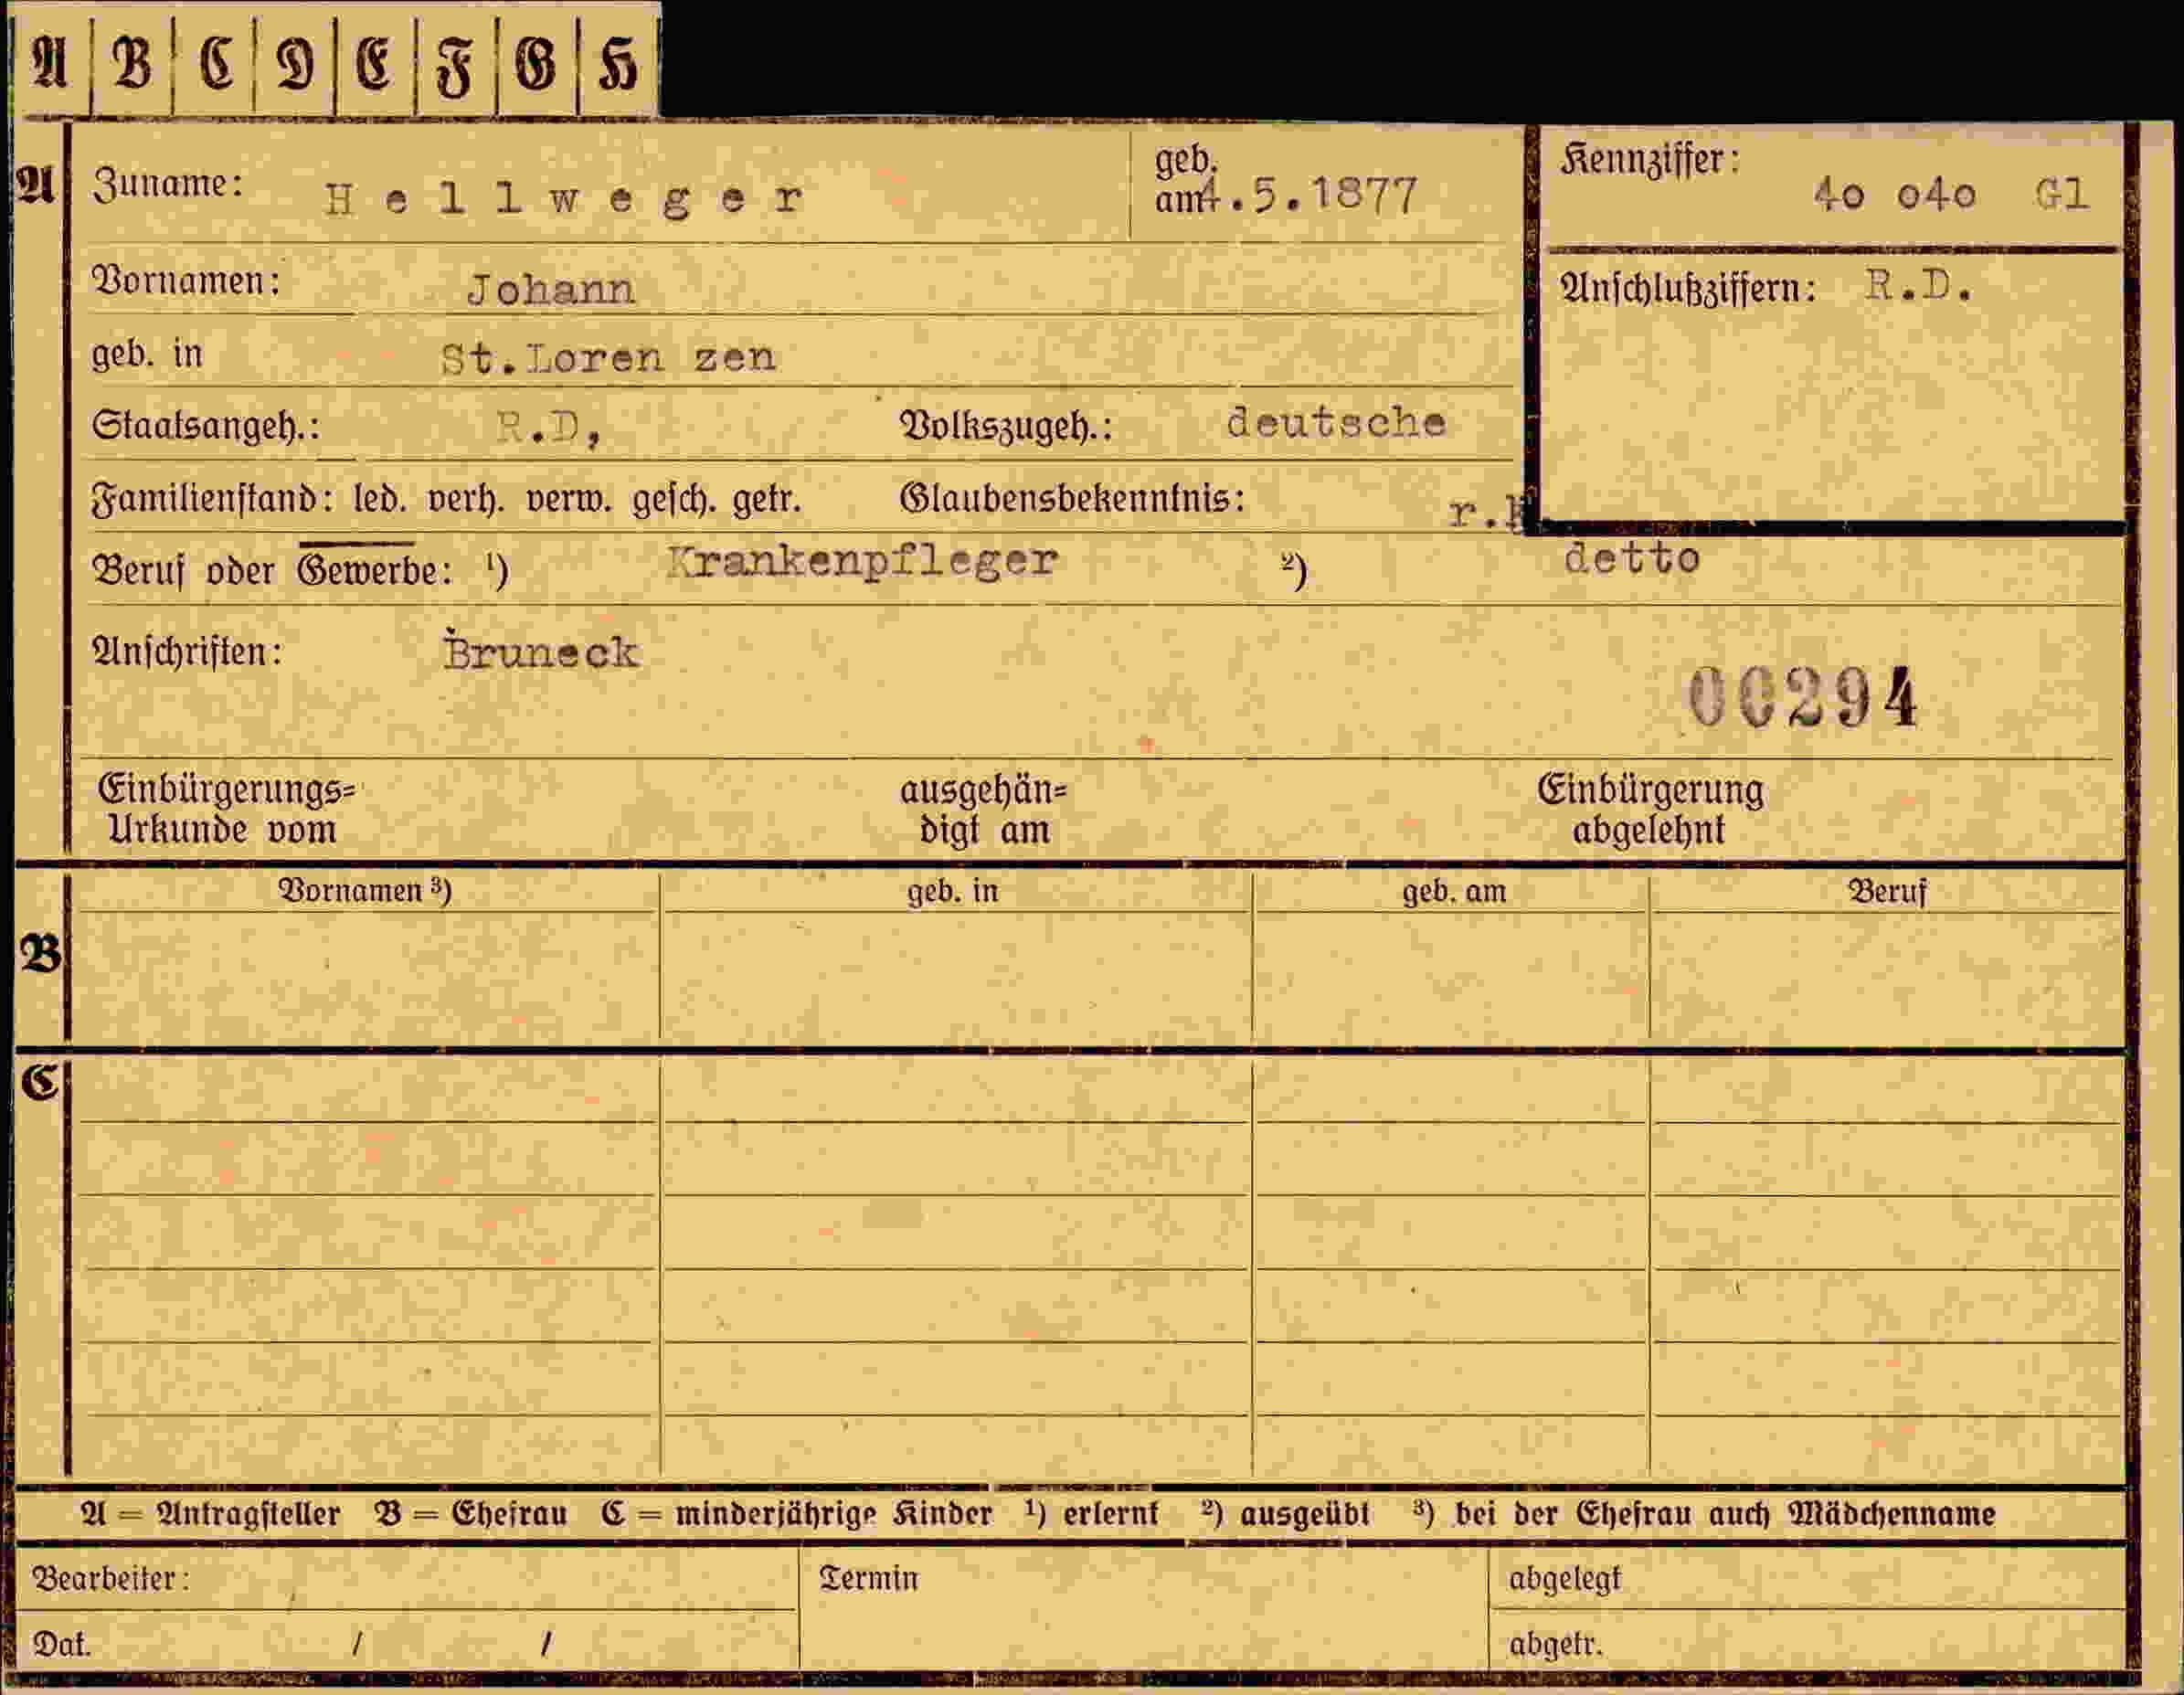 A B C D E F G H
A
Zuname: Hellweger geb. am 4.5.1877
Kennziffer: 4o o4o Gl
Vornamen: Johann
Anschlußziffern: R.D.
geb. in St.Loren zen
Staatsangeh.: R.D, Volkszugeh.: deutsche
Familienstand: led. verh. verw. gesch. getr. Glaubensbekenntnis: r.k
Beruf oder Gewerbe: ¹) Krankenpfleger ²) detto
Anschriften: Bruneck
00294
Einbürgerungs= Urkunde vom
ausgehän= digt am
Einbürgerung abgelehnt
B
Vornamen ³) geb. in geb. am Beruf
C
A = Antragsteller B = Ehefrau C = minderjährige Kinder ¹) erlernt ²) ausgeübt ³) bei der Ehefrau auch Mädchenname
Bearbeiter: Termin abgelegt
Dat. / / abgetr.